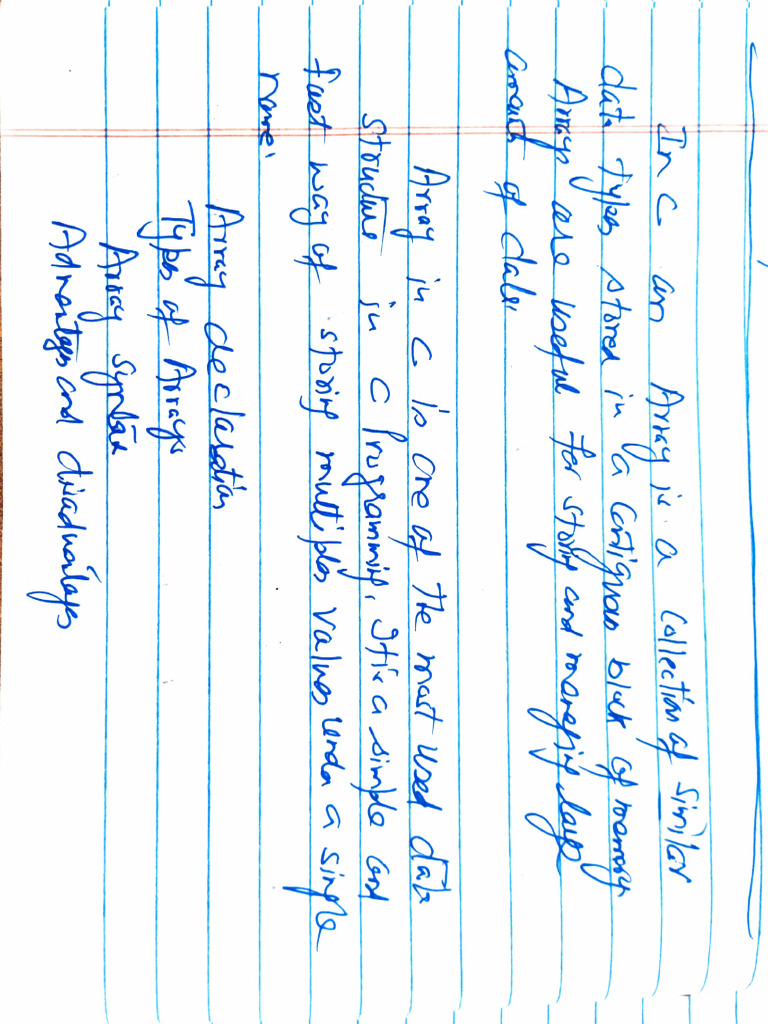 In C an Array is a collection of similar
data types stored in a contiguous block of memory
Arrays are useful for storing and managing large
amount of data.
Array in C is one of the most used data
structure in C Programming. It is a simple and
fast way of storing multiples values under a single
name.
Array declaration
Types of Arrays
Array Syntax
Advantages and disadvantages